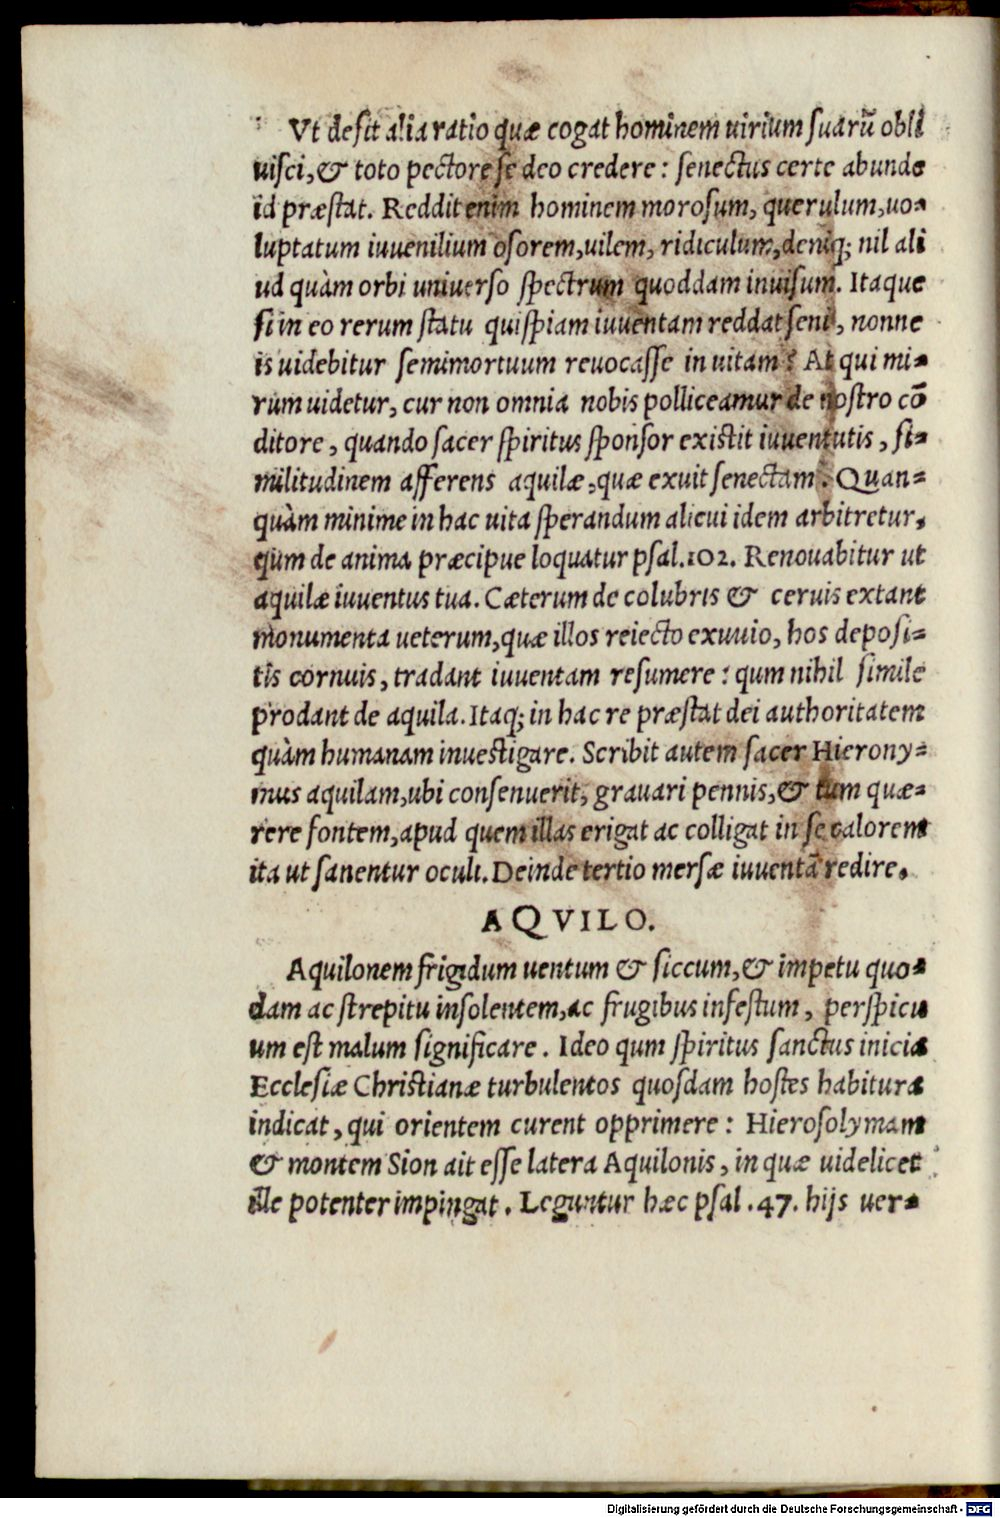 Vt desit alia ratio quæ cogat hominem uirium suarũ obli
uisci, & toto pectore se deo credere: senectus certe abunde
id præstat. Reddit enim hominem morosum, querulum, uo-
luptatum iuuenilium osorem, uilem, ridiculum, deniq; nil ali
ud quàm orbi uniuerso spectrum quoddam inuisum. Itaque
si in eo rerum statu quispiam iuuentam reddat seni, nonne
is uidebitur semimortuum reuocasse in uitam? At qui mi-
rum uidetur, cur non omnia nobis polliceamur de nostro cō
ditore, quando sacer spiritus sponsor existit iuuentutis, si-
militudinem afferens aquilæ, quæ exuit senectam. Quan-
quàm minime in hac uita sperandum alicui idem arbitretur,
qum de anima præcipue loquatur psal. 102. Renouabitur ut
aquilæ iuuentus tua. Cæterum de colubris & ceruis extant
monumenta ueterum, quæ illos reiecto exuuio, hos deposi-
tis cornuis, tradant iuuentam resumere: qum nihil simile
prodant de aquila. Itaq; in hac re præstat dei authoritatem
quàm humanam inuestigare. Scribit autem sacer Hierony-
mus aquilam, ubi consenuerit, grauari pennis, & tum quæ-
rere fontem, apud quem illas erigat ac colligat in se calorem
ita ut sanentur oculi. Deinde tertio mersæ iuuentã redire.
AQVILO.
Aquilonem frigidum uentum & siccum, & impetu quo-
dam ac strepitu insolentem, ac frugibus infestum, perspicu
um est malum significare. Ideo qum spiritus sanctus inicia
Ecclesiæ Christianæ turbulentos quosdam hostes habitura
indicat, qui orientem curent opprimere: Hierosolymam
& montem Sion ait esse latera Aquilonis, in quæ uidelicet
ille potenter impingat. Leguntur hæc psal. 47. hijs uer-
Digitalisierung gefördert durch die Deutsche Forschungsgemeinschaft - DFG